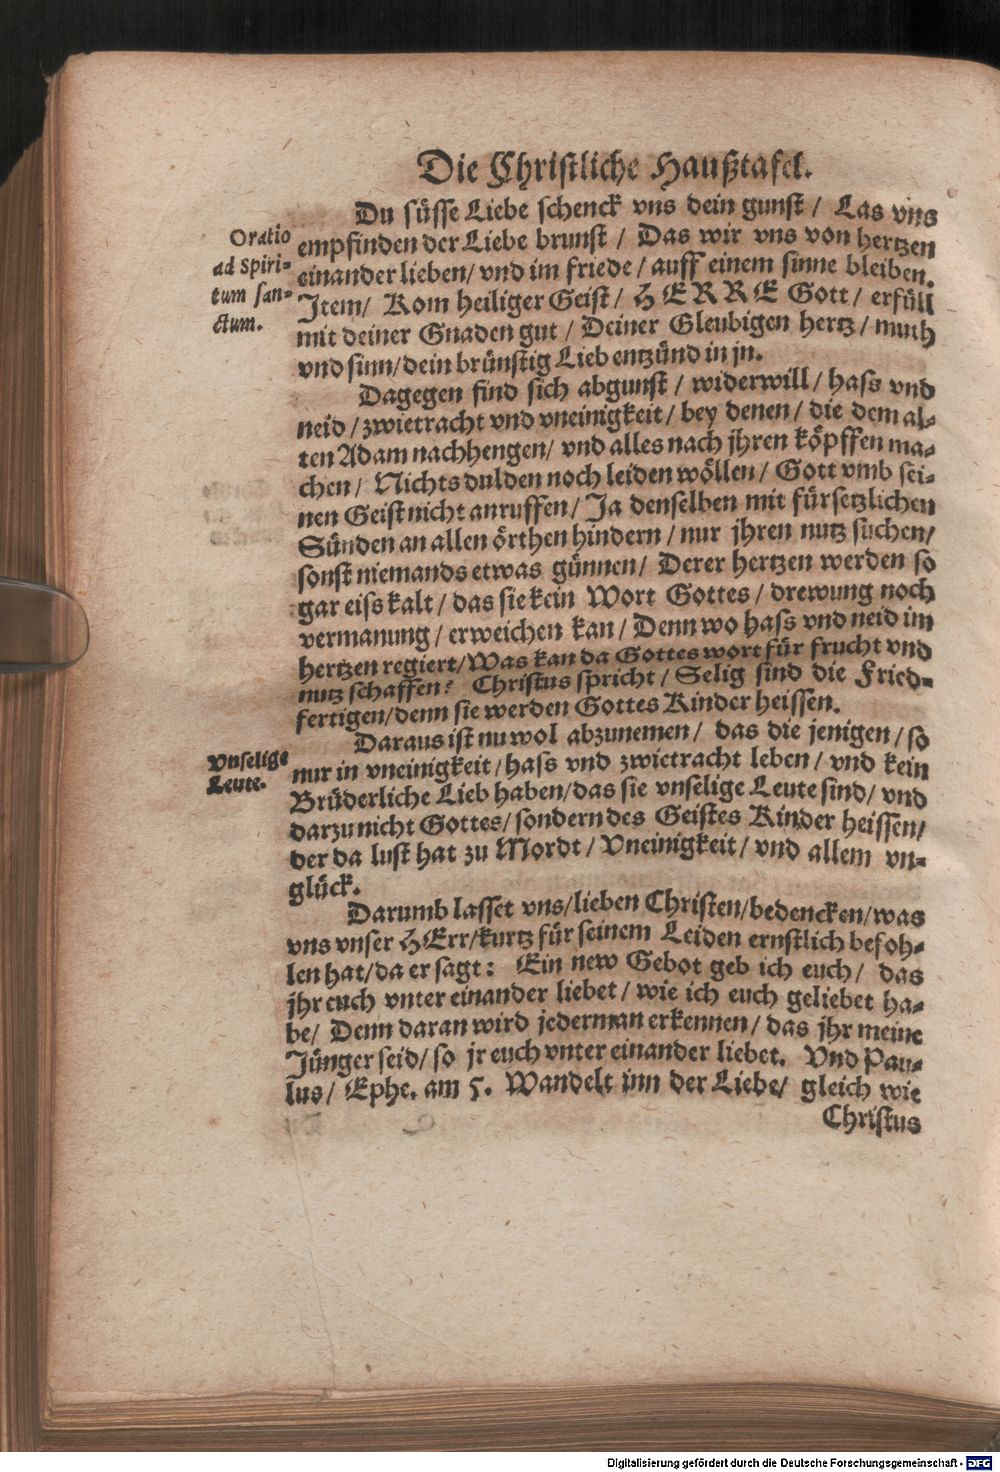 Die Christliche Haußtafel.
Du süsse Liebe schenck vns dein gunst / Las vns
Oratio
ad Spiri-
tum san-
ctum.
empfinden der Liebe brunst / Das wir vns von hertzen
einander lieben / vnd im friede / auff einem sinne bleiben.
Item / Kom heiliger Geist / HERRE Gott / erfüll
mit deiner Gnaden gut / Deiner Gleubigen hertz / muth
vnd sinn / dein brünstig Lieb entzünd in jn.
Dagegen find sich abgunst / widerwill / hass vnd
neid / zwietracht vnd vneinigkeit / bey denen / die dem al-
ten Adam nachhengen / vnd alles nach jhren köpffen ma-
chen / Nichts dulden noch leiden wöllen / Gott vmb sei-
nen Geist nicht anruffen / Ja denselben mit fürsetzlichen
Sünden an allen örthen hindern / nur jhren nutz suchen /
sonst niemands etwas günnen / Derer hertzen werden so
gar eiss kalt / das sie kein Wort Gottes / drewung noch
vermanung / erweichen kan / Denn wo hass vnd neid im
hertzen regiert / Was kan da Gottes wort für frucht vnd
nutz schaffen? Christus spricht / Selig sind die Fried-
fertigen / denn sie werden Gottes Kinder heissen.
Daraus ist nu wol abzunemen / das die jenigen / so
Vnselige
Leute.
nur in vneinigkeit / hass vnd zwietracht leben / vnd kein
Brüderliche Lieb haben / das sie vnselige Leute sind / vnd
darzu nicht Gottes / sondern des Geistes Kinder heissen /
der da lust hat zu Mordt / Vneinigkeit / vnd allem vn-
glück.
Darumb lasset vns / lieben Christen / bedencken / was
vns vnser HErr / kurtz für seinem Leiden ernstlich befoh-
len hat / da er sagt: Ein new Gebot geb ich euch / das
jhr euch vnter einander liebet / wie ich euch geliebet ha-
be / Denn daran wird jederman erkennen / das jhr meine
Jünger seid / so jr euch vnter einander liebet. Vnd Pau-
lus / Ephe. am 5. Wandelt inn der Liebe / gleich wie
Christus
Digitalisierung gefördert durch die Deutsche Forschungsgemeinschaft - DFG